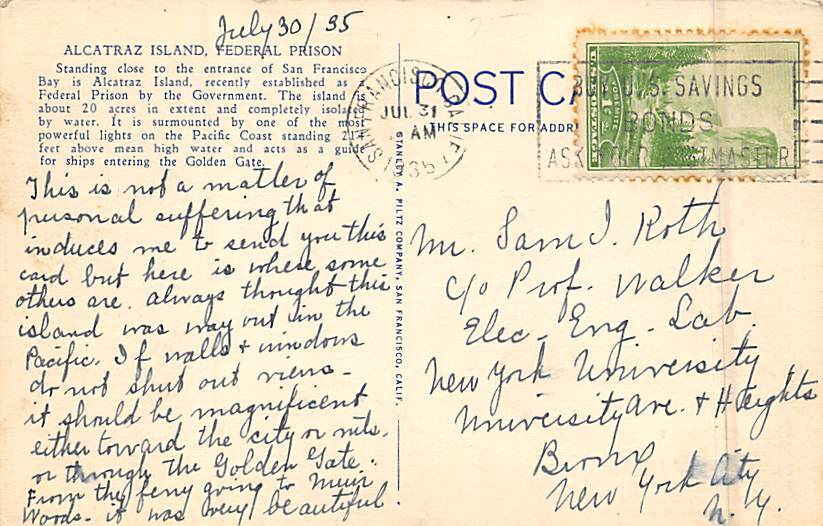 July 30/35
ALCATRAZ ISLAND, FEDERAL PRISON
Standing close to the entrance of San Francisco
Bay is Alcatraz Island, recently established as a
Federal Prison by the Government. The island is
about 20 acres in extent and completely isolated
by water. It is surmounted by one of the most
powerful lights on the Pacific Coast standing 214
feet above mean high water and acts as a guide
for ships entering the Golden Gate.
This is not a matter of
personal suffering that
induces me to send you this
card but here is where some
others are. Always thought this
island was way out in the
Pacific. If walls & windows
do not shut out views -
it should be magnificent
either toward the city or mts.
or through the Golden Gate.
From the ferry going to Muir
Woods - it was very beautiful.
STANLEY A. PILTZ COMPANY, SAN FRANCISCO, CALIF.
POST CA
THIS SPACE FOR ADDR
SAN FRANCISCO CALIF
JUL 31
AM
1935
BUY U.S. SAVINGS
BONDS
ASK YOUR POSTMASTER
Mr. Sam I. Roth
c/o Prof. Walker
Elec. Eng. Lab.
New York University
University Ave. & Heights
Bronx
New York City
N.Y.